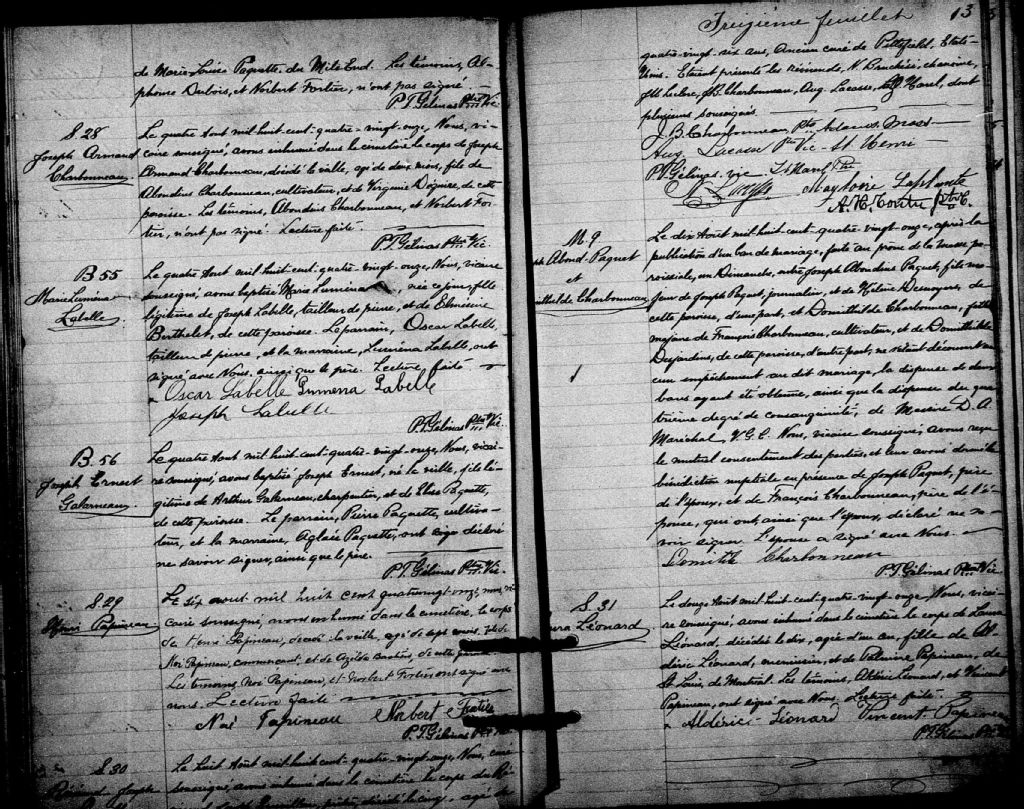 de Marie-Louise Paquette, du Mile End. Les témoins, Al-
phonse Dubois, et Norbert Fortier, n'ont pas signé
P.T. Gélinas Ptre Vic.
S. 28
Joseph Armand
Charbonneau
Le quatre Août mil huit-cent-quatre-vingt-onze, Nous, vi-
caire soussigné, avons inhumé dans le cimetière le corps de Joseph
Armand Charbonneau, décédé la veille, agé de deux mois, fils de
Abondius Charbonneau, cultivateur, et de Virginie Dagenais, de cette
paroisse. Les témoins, Abondius Charbonneau, et Norbert For-
tier, n'ont pas signé. Lecture faite.
P.T. Gélinas Ptre Vic.
B. 55
Marie Luména
Labelle
Le quatre Août mil huit-cent-quatre-vingt-onze, Nous, vicaire
soussigné, avons baptisé Marie Luména, née ce jour, fille
légitime de Joseph Labelle, tailleur de pierre, et de
Berthelet, de cette paroisse. Le parrain, Oscar Labelle,
tailleur de pierre, et la marraine, Luména Labelle, ont
signé avec Nous, ainsi que le père. Lecture faite
Oscar Labelle Labelle
Joseph Labelle
P.T. Gélinas Ptre Vic.
B. 56
Joseph Ernest
Galarneau
Le quatre Août mil huit-cent-quatre-vingt-onze, Nous, vicai-
re soussigné, avons baptisé Joseph Ernest, né la veille, fils lé-
gitime de Arthur Galarneau, charpentier, et de Elise Paquette,
de cette paroisse. Le parrain, Pierre Paquette, cultiva-
teur, et la marraine, Aglaée Paquette, ont déclaré
ne savoir signer, ainsi que le père.
P.T. Gélinas Ptre Vic.
S. 29
Henri Papineau
Le six aout mil huit cent quatrevingt onze, nous, vi
caire soussigné, avons inhumé dans le cimetière, le corps
de Henri Papineau, décédé la veille, agé de sept mois, fils de
Noé Papineau, commerçant, et de Azilda, de cette
Les temoins, Noé Papineau, et Norbert Fortier ont signé avec
nous. Lecture faite
Noé Papineau Norbert Fortier
P.T. Gélinas Ptre Vic
S. 30
Joseph
Le huit Août mil huit-cent-quatre-vingt-onze, Nous, vicaire
soussigné, avons inhumé dans le cimetière le corps du Ré-
Treizième feuillet
13
quatre-vingt-six ans, Ancien curé de Pittsfield, Etats-
Unis. Etaient présents les révérends, N. Bruchési, chanoine,
Jos. Leclerc, J.B. Charbonneau, Aug. Lacasse, Harel, dont
plusieurs soussignés
J.B. Charbonneau Ptre Adams, Mass
Aug. Lacasse Ptre Vic. St. Henri
P.T. Gélinas, vic Harel Ptre
Laplante
M. 9
Abond. Paquet
et
Domithilde Charbonneau
Le dix Août mil huit-cent-quatre-vingt-onze, après la
publication d'un ban de mariage, faite au prône de la messe pa-
roissiale, un Dimanche, entre Joseph Abondius Paquet, fils ma-
jeur de Joseph Paquet, journalier, et de Hélène Desnoyers, de
cette paroisse, d'une part, et Domithilde Charbonneau, fille
majeure de François Charbonneau, cultivateur, et de Domithilde
Desjardins, de cette paroisse, d'autre part, ne s'étant découvert au-
cun empêchement au dit mariage, la dispense de deux
bans ayant été obtenue, ainsi que la dispense du qua-
trième degré de consanguinité, de Messire D. A.
Maréchal V.G.C. Nous, vicaire soussigné, avons reçu
le mutuel consentement des parties, et leur avons donné la
bénédiction nuptiale en présence de Joseph Paquet, père
de l'époux, et de François Charbonneau, père de l'é-
pouse, qui ont, ainsi que l'époux, déclaré ne sa-
voir signer. L'épouse a signé avec Nous.
Domitile Charbonneau
P.T. Gélinas Ptre Vic.
S. 31
Laura Léonard
Le douze Août mil huit-cent-quatre-vingt-onze, Nous, vicai-
re soussigné, avons inhumé dans le cimetière le corps de Laura
Léonard, décédée le dix, agée d'un an, fille de Al-
déric Léonard, menuisier, et de Palmire Papineau, de
St Louis, de Montréal. Les témoins, Aldéric Léonard, et Vincent
Papineau, ont signé avec Nous, Lecture faite.
Aldéric Léonard Vincent Papineau
P.T. Gélinas Ptre